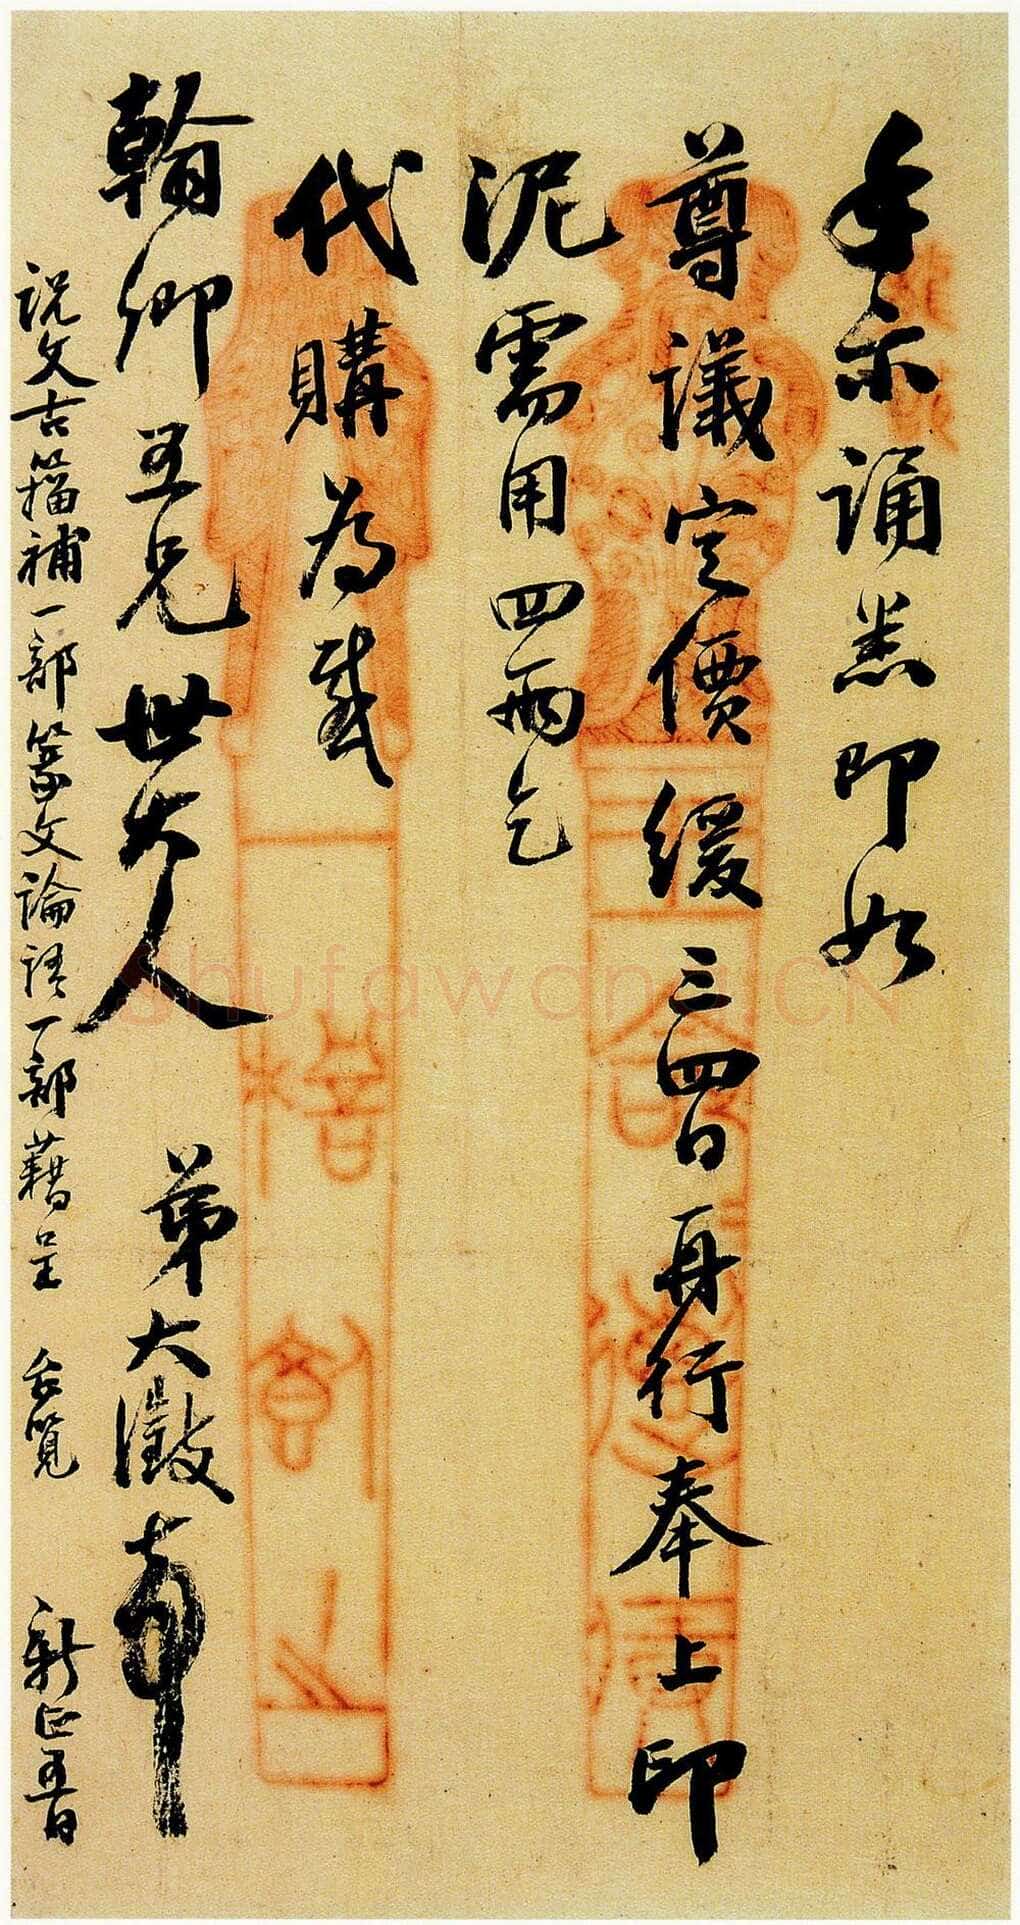 手示誦悉即如
尊議定價緩三四日再行奉上印
泥需用四兩乞
代購為感
翰卿五兄世大人 弟大澂頓
說文古籀補一部篆文論語一部藉呈 台覽 新正五日
shufawang.CN